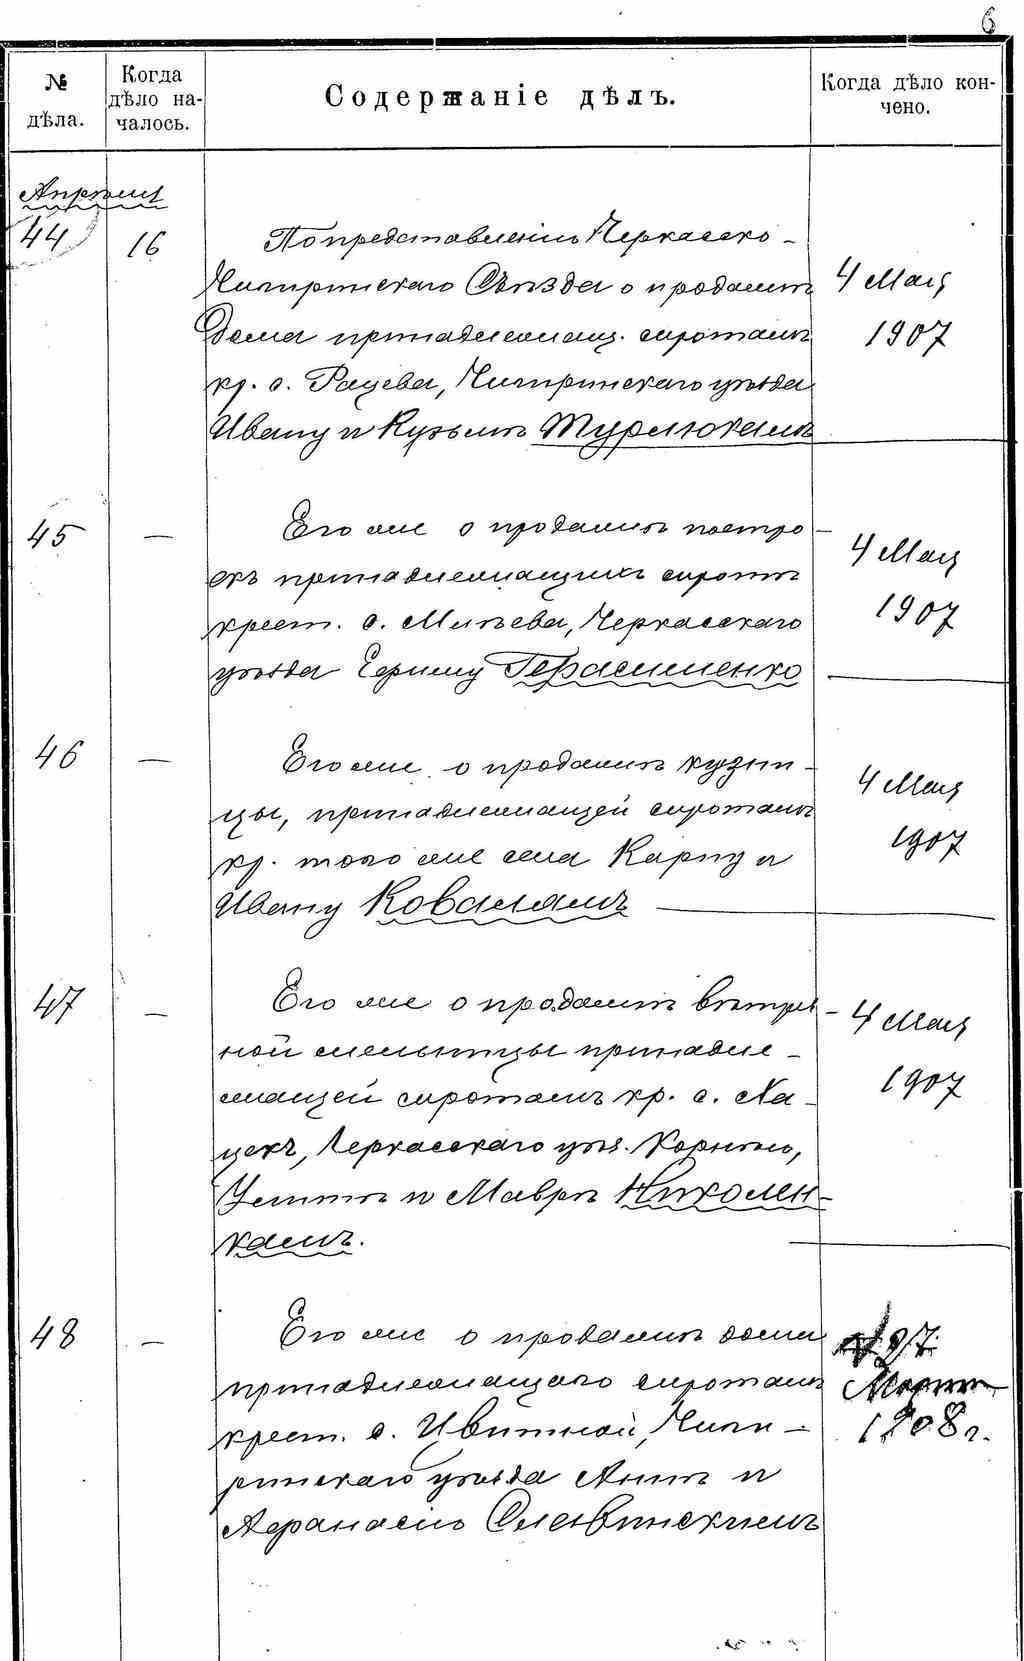 6
№ дѣла.
Когда дѣло на-
чалось.
Содержаніе дѣлъ.
Когда дѣло кон-
чено.
Апрѣля
44 16 По представленію Черкасско-
Чигиринскаго Съѣзда о продажѣ
дома принадлежащ. сиротамъ
кр. с. Рацева, Чигиринскаго уѣзда
Ивану и Кузьмѣ Турлюкамъ
4 Мая
1907
45 — Его же о продажѣ постро-
екъ принадлежащихъ сиротѣ
крест. с. Млѣева, Черкасскаго
уѣзда Ефиму Герасименко
4 Мая
1907
46 — Его же о продажѣ кузни-
цы, принадлежащей сиротамъ
кр. того же села Карпу и
Ивану Ковалямъ
4 Мая
1907
47 — Его же о продажѣ вѣтря-
ной мельницы принадле-
жащей сиротамъ кр. с. Ха-
цекъ, Черкасскаго уѣз. Корнѣю,
Улитѣ и Маврѣ Николен-
камъ.
4 Мая
1907
48 — Его же о продажѣ дома
принадлежащаго сиротамъ
крест. с. Цвѣтной, Чиги-
ринскаго уѣзда Аннѣ и
Афанасію Славинскимъ
27
Марта
1908 г.